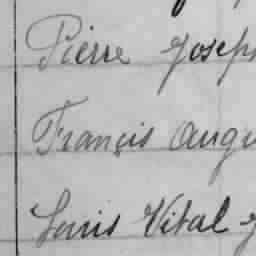 Pierre Joseph
François Augu
Louis Vital